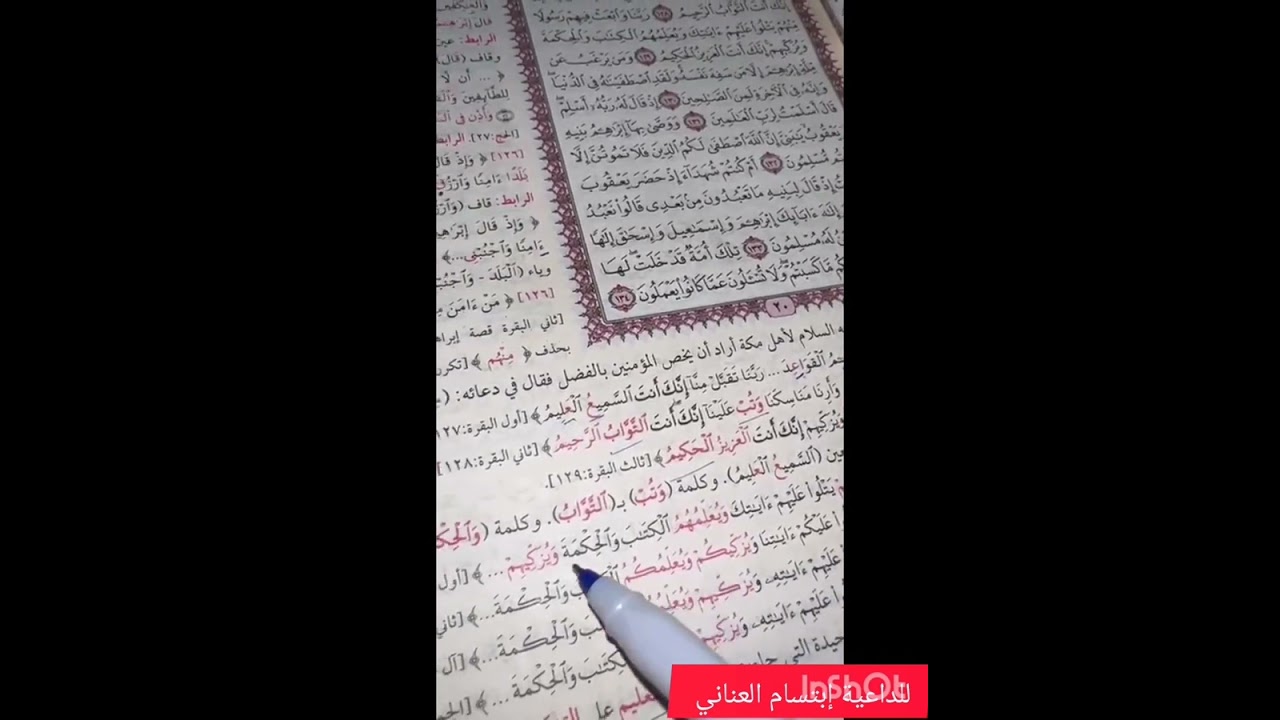 إِنَّكَ أَنتَ ٱلتَّوَّابُ ٱلرَّحِيمُ ١٢٨ رَبَّنَا وَٱبْعَثْ فِيهِمْ رَسُولًا
مِّنْهُمْ يَتْلُواْ عَلَيْهِمْ ءَايَٰتِكَ وَيُعَلِّمُهُمُ ٱلْكِتَٰبَ وَٱلْحِكْمَةَ
وَيُزَكِّيهِمْ إِنَّكَ أَنتَ ٱلْعَزِيزُ ٱلْحَكِيمُ ١٢٩ وَمَن يَرْغَبُ عَن
مِّلَّةِ إِبْرَٰهِۦمَ إِلَّا مَن سَفِهَ نَفْسَهُۥ وَلَقَدِ ٱصْطَفَيْنَٰهُ فِى ٱلدُّنْيَا
وَإِنَّهُۥ فِى ٱلْءَاخِرَةِ لَمِنَ ٱلصَّٰلِحِينَ ١٣٠ إِذْ قَالَ لَهُۥ رَبُّهُۥٓ أَسْلِمْ
قَالَ أَسْلَمْتُ لِرَبِّ ٱلْعَٰلَمِينَ ١٣١ وَوَصَّىٰ بِهَآ إِبْرَٰهِۦمُ بَنِيهِ
يَعْقُوبُ يَٰبَنِىَّ إِنَّ ٱللَّهَ ٱصْطَفَىٰ لَكُمُ ٱلدِّينَ فَلَا تَمُوتُنَّ إِلَّا
مُّسْلِمُونَ ١٣٢ أَمْ كُنتُمْ شُهَدَآءَ إِذْ حَضَرَ يَعْقُوبَ
إِذْ قَالَ لِبَنِيهِ مَا تَعْبُدُونَ مِنۢ بَعْدِى قَالُواْ نَعْبُدُ
إِلَٰهَ ءَابَآئِكَ إِبْرَٰهِۦمَ وَإِسْمَٰعِيلَ وَإِسْحَٰقَ إِلَٰهًا
لَهُۥ مُسْلِمُونَ ١٣٣ تِلْكَ أُمَّةٌ قَدْ خَلَتْ لَهَا
مَّا كَسَبْتُمْ وَلَا تُسْـَٔلُونَ عَمَّا كَانُواْ يَعْمَلُونَ ١٣٤
٢٠
قال إبراهيم
الرابط: عين
وقاف (قال
﴿ ... أن لا
لِلطَّآئِفِينَ وَٱلْقَ
وَأَذِّن فِى ٱل
[الحج:٢٧]. الرابط
[١٢٦] ﴿ وَإِذْ قَالَ
بَلَدًا ءَامِنًا وَٱرْزُقْ
الرابط: قاف (وَٱرْزُ
﴿ وَإِذْ قَالَ إِبْرَٰهِي
ءَامِنًا وَٱجْنُبْنِى...﴾
وياء (ٱلْبَلَدَ - وَٱجْنُبْ
[١٢٦] ﴿ مَنْ ءَامَنَ مِ
[ثاني البقرة قصة إبرا
بحذف ﴿ مِنْهُم ﴾ [تكرر
السلام لأهل مكة أراد أن يخص المؤمنين بالفضل فقال في دعائه:
ٱلْقَوَاعِدَ ... رَبَّنَا تَقَبَّلْ مِنَّآ إِنَّكَ أَنتَ ٱلسَّمِيعُ ٱلْعَلِيمُ ﴾ [أول البقرة:١٢٧
وَأَرِنَا مَنَاسِكَنَا وَتُبْ عَلَيْنَآ إِنَّكَ أَنتَ ٱلتَّوَّابُ ٱلرَّحِيمُ ﴾ [ثاني البقرة:١٢٨]
وَيُزَكِّيهِمْ إِنَّكَ أَنتَ ٱلْعَزِيزُ ٱلْحَكِيمُ ﴾ [ثالث البقرة:١٢٩].
(ٱلسَّمِيعُ ٱلْعَلِيمُ). وكلمة (وَتُبْ) بـ(ٱلتَّوَّابُ). وكلمة (وَٱلْحِكْ
يَتْلُواْ عَلَيْهِمْ ءَايَٰتِكَ وَيُعَلِّمُهُمُ ٱلْكِتَٰبَ وَٱلْحِكْمَةَ وَيُزَكِّيهِمْ ... ﴾ [أول
عَلَيْكُمْ ءَايَٰتِنَا وَيُزَكِّيكُمْ وَيُعَلِّمُكُمُ وَٱلْحِكْمَةَ...﴾ [ثاني
عَلَيْهِمْ ءَايَٰتِهِۦ وَيُزَكِّيهِمْ وَيُعَلِّمُ وَٱلْحِكْمَةَ...﴾ [آل
عَلَيْهِمْ ءَايَٰتِهِۦ وَيُزَكِّيهِمْ ٱلْكِتَٰبَ وَٱلْحِكْمَةَ ...﴾ [الجم
التي
على
InShOt
للداعية إبتسام العناني